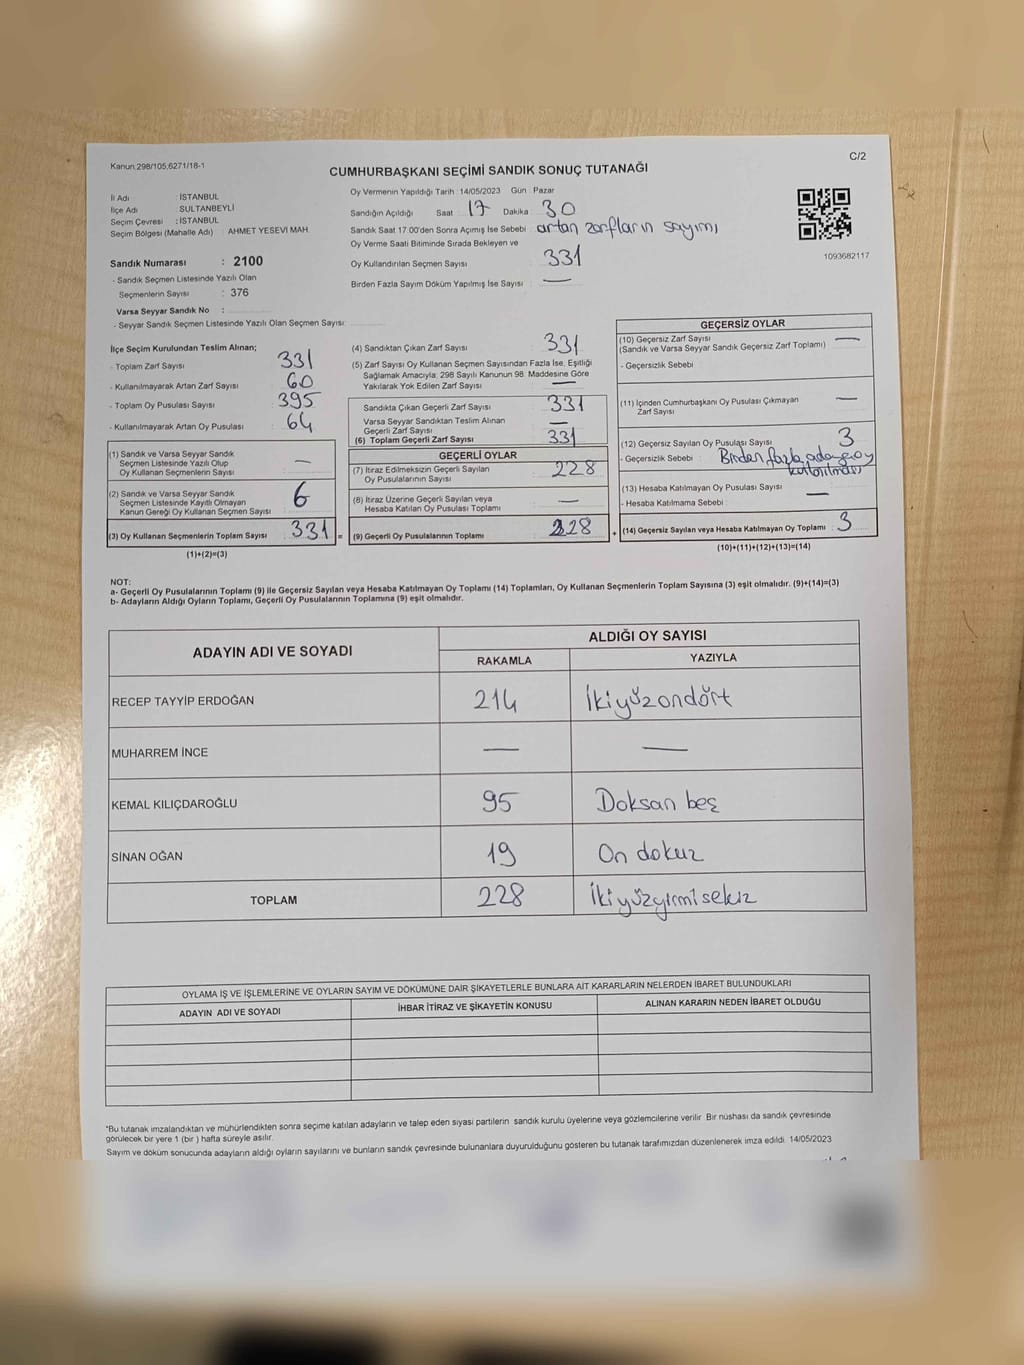 Kanun:298/105,6271/18-1
C/2
CUMHURBAŞKANI SEÇİMİ SANDIK SONUÇ TUTANAĞI
İl Adı : İSTANBUL
İlçe Adı : SULTANBEYLİ
Seçim Çevresi : İSTANBUL
Seçim Bölgesi (Mahalle Adı) : AHMET YESEVİ MAH.
Sandık Numarası : 2100
- Sandık Seçmen Listesinde Yazılı Olan
Seçmenlerin Sayısı : 376
Varsa Seyyar Sandık No :
- Seyyar Sandık Seçmen Listesinde Yazılı Olan Seçmen Sayısı:
Oy Vermenin Yapıldığı Tarih :14/05/2023 Gün : Pazar
Sandığın Açıldığı Saat : 17 Dakika : 30
Sandık Saat 17.00'den Sonra Açımış İse Sebebi : artan zarfların sayımı
Oy Verme Saati Bitiminde Sırada Bekleyen ve
Oy Kullandırılan Seçmen Sayısı 331
Birden Fazla Sayım Döküm Yapılmış İse Sayısı : —
1093682117
İlçe Seçim Kurulundan Teslim Alınan;
- Toplam Zarf Sayısı : 331
- Kullanılmayarak Artan Zarf Sayısı : 60
- Toplam Oy Pusulası Sayısı : 395
- Kullanılmayarak Artan Oy Pusulası : 64
(1) Sandık ve Varsa Seyyar Sandık
Seçmen Listesinde Yazılı Olup
Oy Kullanan Seçmenlerin Sayısı : —
(2) Sandık ve Varsa Seyyar Sandık
Seçmen Listesinde Kayıtlı Olmayan
Kanun Gereği Oy Kullanan Seçmen Sayısı : 6
(3) Oy Kullanan Seçmenlerin Toplam Sayısı : 331
(1)+(2)=(3)
(4) Sandıktan Çıkan Zarf Sayısı : 331
(5) Zarf Sayısı Oy Kullanan Seçmen Sayısından Fazla İse, Eşitliği
Sağlamak Amacıyla; 298 Sayılı Kanunun 98. Maddesine Göre
Yakılarak Yok Edilen Zarf Sayısı : —
Sandıkta Çıkan Geçerli Zarf Sayısı : 331
Varsa Seyyar Sandıktan Teslim Alınan
Geçerli Zarf Sayısı : —
(6) Toplam Geçerli Zarf Sayısı : 331
GEÇERLİ OYLAR
(7) İtiraz Edilmeksizin Geçerli Sayılan
Oy Pusulalarının Sayısı : 228
(8) İtiraz Üzerine Geçerli Sayılan veya
Hesaba Katılan Oy Pusulası Toplamı : —
= (9) Geçerli Oy Pusulalarının Toplamı : 228
GEÇERSİZ OYLAR
(10) Geçersiz Zarf Sayısı
(Sandık ve Varsa Seyyar Sandık Geçersiz Zarf Toplamı) : —
- Geçersizlik Sebebi :
(11) İçinden Cumhurbaşkanı Oy Pusulası Çıkmayan
Zarf Sayısı : —
(12) Geçersiz Sayılan Oy Pusulası Sayısı : 3
- Geçersizlik Sebebi : Birden fazla adaya oy
kullanılması
(13) Hesaba Katılmayan Oy Pusulası Sayısı : —
- Hesaba Katılmama Sebebi :
+ (14) Geçersiz Sayılan veya Hesaba Katılmayan Oy Toplamı : 3
(10)+(11)+(12)+(13)=(14)
NOT:
a- Geçerli Oy Pusulalarının Toplamı (9) ile Geçersiz Sayılan veya Hesaba Katılmayan Oy Toplamı (14) Toplamları, Oy Kullanan Seçmenlerin Toplam Sayısına (3) eşit olmalıdır. (9)+(14)=(3)
b- Adayların Aldığı Oyların Toplamı, Geçerli Oy Pusulalarının Toplamına (9) eşit olmalıdır.
ADAYIN ADI VE SOYADI
ALDIĞI OY SAYISI
RAKAMLA YAZIYLA
RECEP TAYYİP ERDOĞAN 214 İkiyüzondört
MUHARREM İNCE — —
KEMAL KILIÇDAROĞLU 95 Doksan beş
SİNAN OĞAN 19 On dokuz
TOPLAM 228 İkiyüzyirmisekiz
OYLAMA İŞ VE İŞLEMLERİNE VE OYLARIN SAYIM VE DÖKÜMÜNE DAİR ŞİKAYETLERLE BUNLARA AİT KARARLARIN NELERDEN İBARET BULUNDUKLARI
ADAYIN ADI VE SOYADI İHBAR İTİRAZ VE ŞİKAYETİN KONUSU ALINAN KARARIN NEDEN İBARET OLDUĞU
*Bu tutanak imzalandıktan ve mühürlendikten sonra seçime katılan adayların ve talep eden siyasi partilerin sandık kurulu üyelerine veya gözlemcilerine verilir. Bir nüshası da sandık çevresinde
görülecek bir yere 1 (bir ) hafta süreyle asılır.
Sayım ve döküm sonucunda adayların aldığı oyların sayılarını ve bunların sandık çevresinde bulunanlara duyurulduğunu gösteren bu tutanak tarafımızdan düzenlenerek imza edildi. 14/05/2023